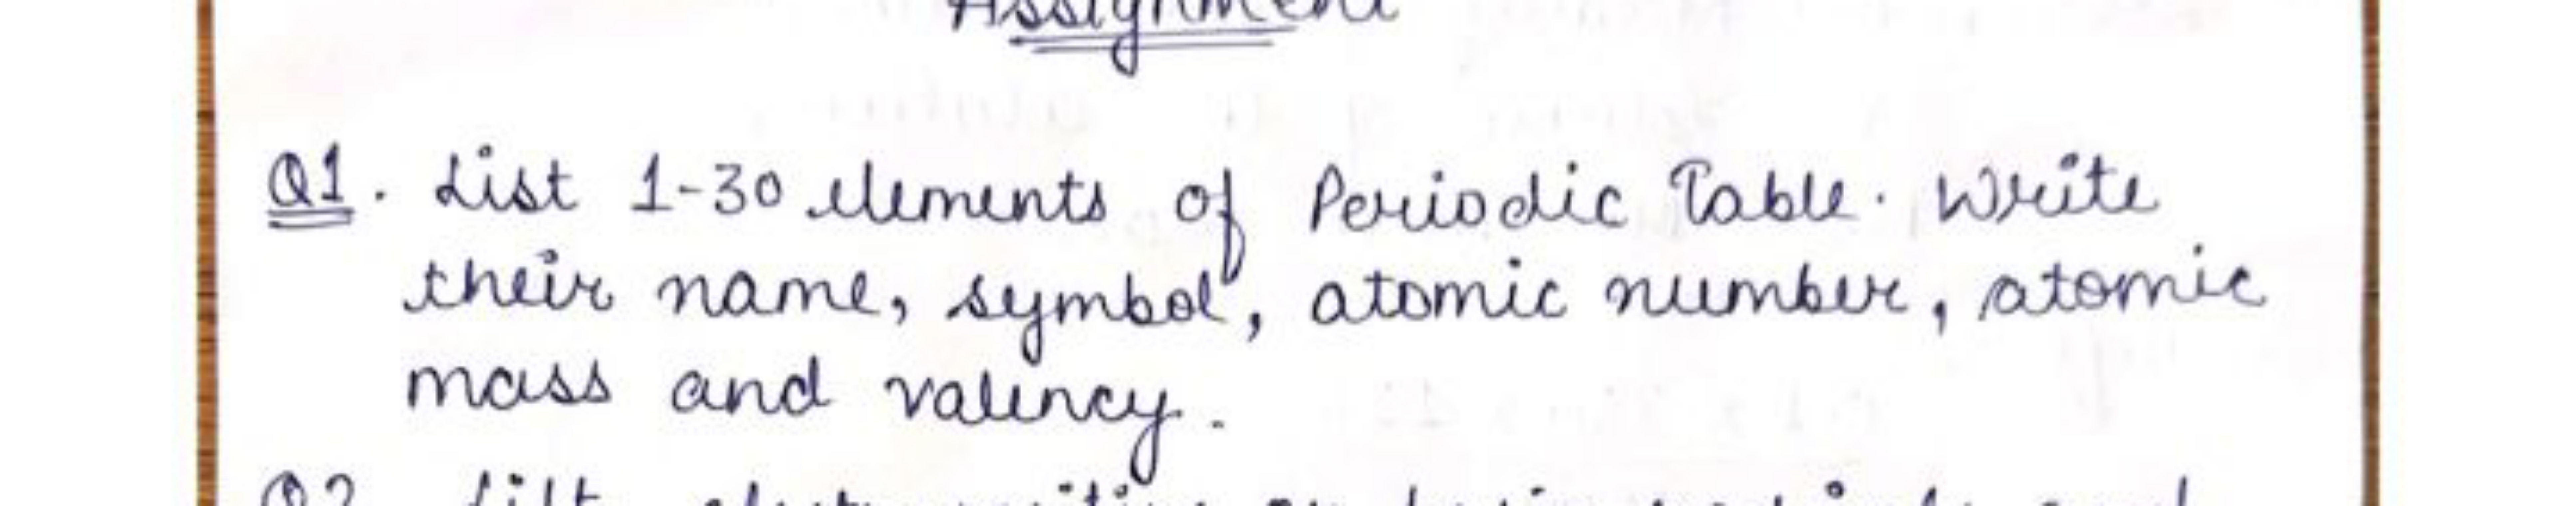 Assignment
Q1. List 1-30 elements of Periodic Table. Write
their name, symbol, atomic number, atomic
mass and valency.
Q2